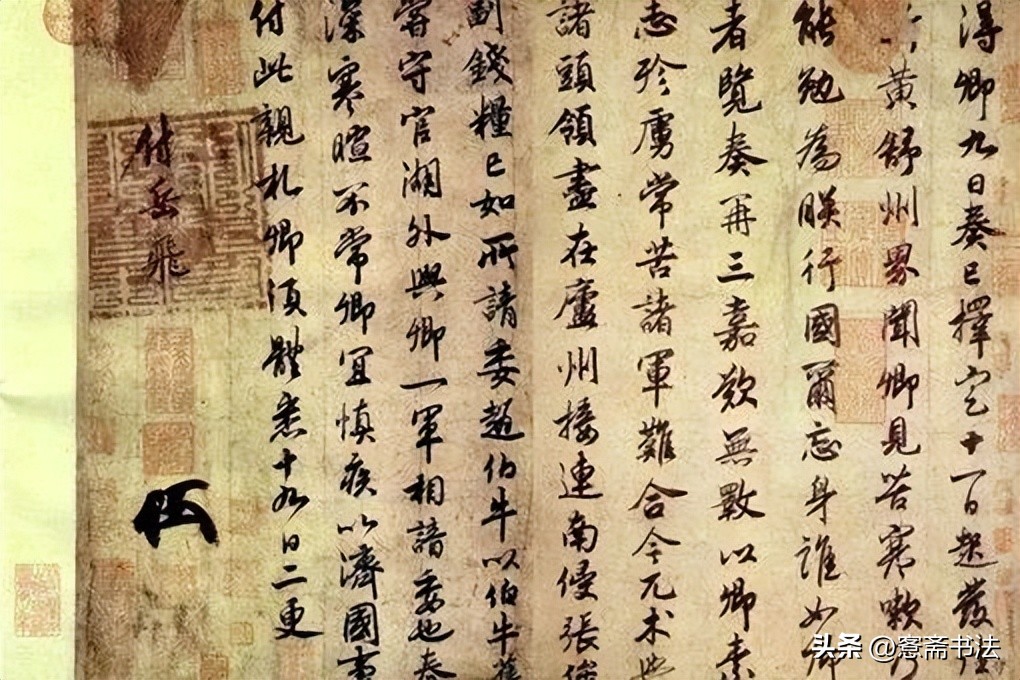 得卿九日奏已擇定十一日起發
黃舒州界聞卿見苦寒嗽
能勉為朕行國爾忘身誰如卿
者覽奏再三嘉歎無斁以卿素
志殄虜常苦諸軍難合今兀术與
諸頭領盡在廬州接連南侵張俊
副錢糧已如所請委趙伯牛以伯牛舊
嘗守官湖外與卿一軍相諳委也春
深寒暄不常卿宜慎疾以濟國事
付此親札卿須體悉十九日二更
付岳飛
头条 @愙斋书法